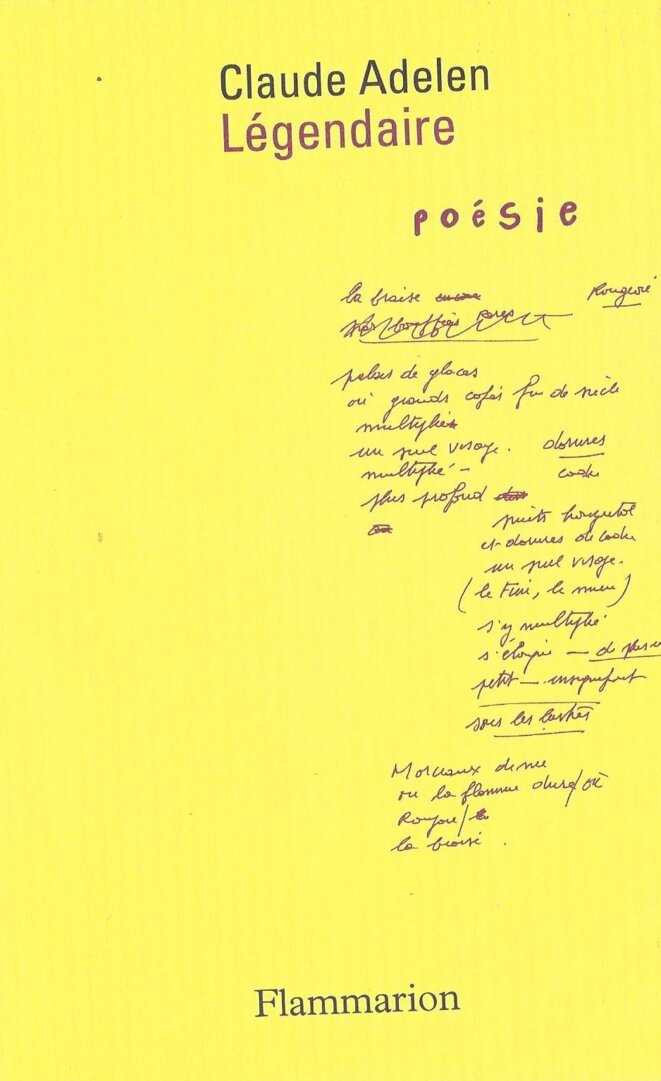 Claude Adelen
Légendaire
poésie
la braise
Rougeoie
palais de glaces
où grands cafés fin de siècle
multiplié
un seul visage. dorures
multiplié –
plus profond
puits
et dorures de
un seul visage.
(le tien, le mien)
s'y multiplie
s'éloigne – de plus
petit – insignifiant
sous les lustres
Morceaux de
ou la flamme dure/où
Rougeoie/
la braise.
Flammarion